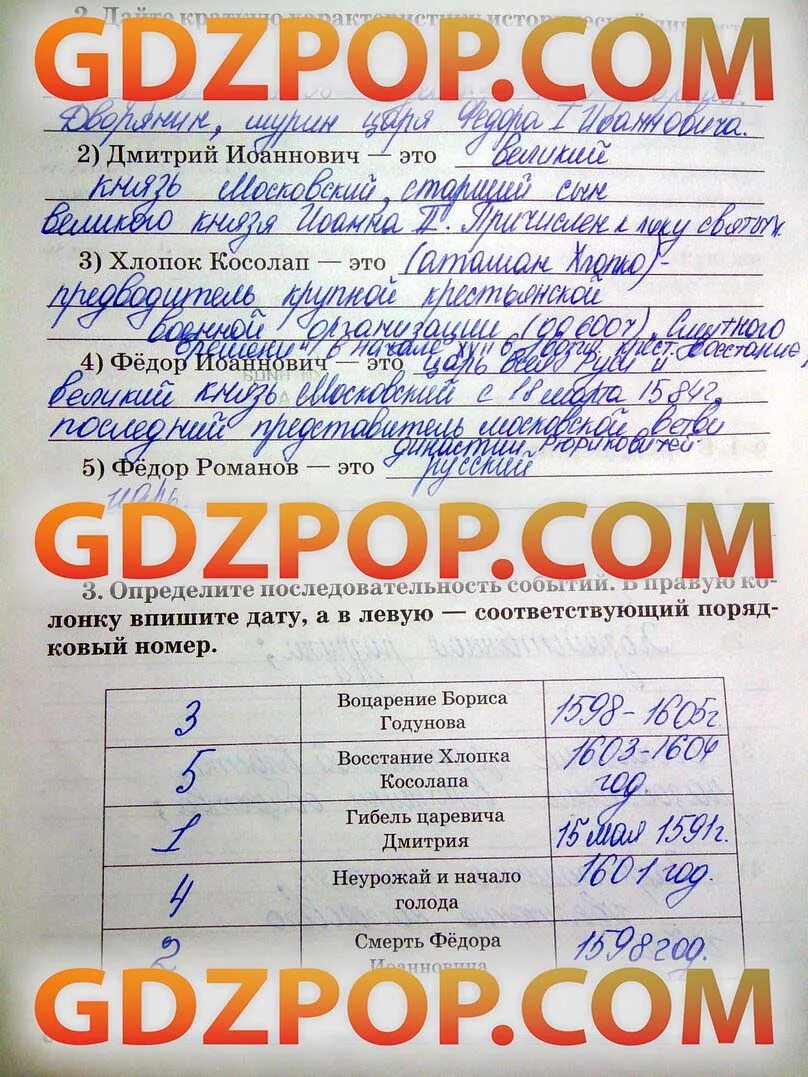 2. Дайте краткую характеристику исторической
GDZPOP.COM
Дворянин, шурин царя Фёдора I Иоанновича.
2) Дмитрий Иоаннович — это великий
князь Московский, старший сын
великого князя Иоанна II. Причислен к лику святых.
3) Хлопок Косолап — это (атаман Хлопко)-
предводитель крупной крестьянской
военной организации (до 600ч). Смутного
времени" в начале XVII в.
4) Фёдор Иоаннович — это царь всея Руси и
великий князь Московский с 18 марта 1584г,
последний представитель московской ветви
династии Рюриковичей
5) Фёдор Романов — это русский
царь.
GDZPOP.COM
3. Определите последовательность событий. В правую ко-
лонку впишите дату, а в левую — соответствующий поряд-
ковый номер.
3 Воцарение Бориса 1598-1605г.
Годунова
5 Восстание Хлопка 1603-1604
Косолапа год
1 Гибель царевича 15 мая 1591г.
Дмитрия
4 Неурожай и начало 1601 год.
голода
2 Смерть Фёдора 1598 год.
Иоанновича
GDZPOP.COM